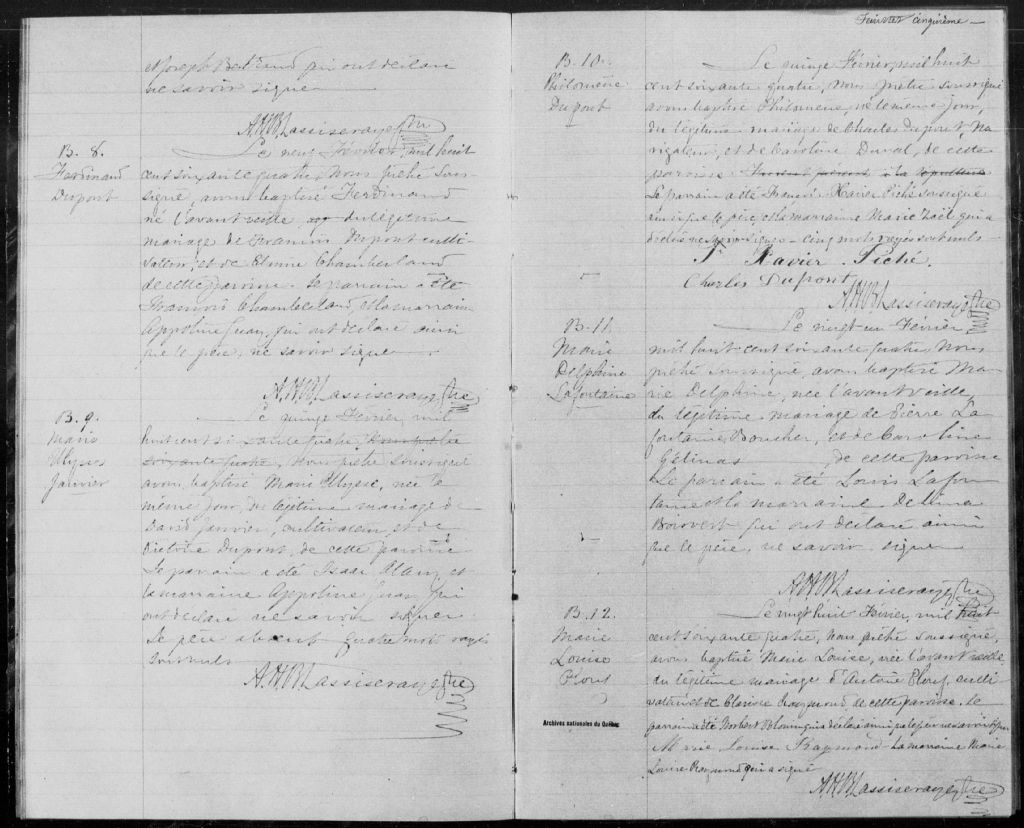 Joseph Bertrand qui ont déclaré
ne savoir signer
A.H.B. Lassiseraye Ptre
B. 8.
Ferdinand
Dupont
Le neuf Février, mil huit
cent soixante quatre, Nous prêtre sous-
signé avons baptisé Ferdinand
né l'avant veille du légitime
mariage de Dupont culti-
vateur, et de Chamberland
de cette paroisse. Le parrain a été
François Chamberland, et la marraine
Appoline qui ont déclaré ainsi
que le père, ne savoir signer
A.H.B. Lassiseraye Ptre
B. 9.
Marie
Ulysse
Janvier
Le quinze Février, mil
huit cent soixante quatre,
soixante quatre, Nous prêtre soussigné
avons baptisé Marie Ulysse, née le
même jour, du légitime mariage de
David Janvier, cultivateur, et de
Victoire Dupont, de cette paroisse
Le parrain a été Isaac et
la marraine Appoline qui
ont déclaré ne savoir signer
Le père absent quatre mots rayés
sont nuls
A.H.B. Lassiseraye Ptre
Feuillet cinquième —
B. 10.
Philomène
Dupont
Le quinze Février mil huit
cent soixante quatre, Nous prêtre soussigné
avons baptisé Philomène, née le même jour,
du légitime mariage de Charles Dupont, Na-
vigateur, et de Caroline Duval, de cette
paroisse.
Le parrain a été Xavier Piché soussigné
ainsi que le père et la marraine Marie qui a
déclaré ne savoir signer — cinq mots rayés sont nuls —
F. Xavier Piché.
Charles Dupont
A.H.B. Lassiseraye Ptre
B. 11.
Marie
Delphine
Lafontaine
Le vingt un Février
mil huit cent soixante quatre Nous
prêtre soussigné, avons baptisé Ma-
rie Delphine, née l'avant veille,
du légitime mariage de Pierre La
fontaine, Boucher, et de Caroline
Gélinas, de cette paroisse
Le parrain a été Louis Lafon
taine et la marraine Delima
Boisvert qui ont déclaré ainsi
que le père, ne savoir signer
A.H.B. Lassiseraye Ptre
B. 12.
Marie
Louise
Plouf
Le vingt huit Février, mil huit
cent soixante quatre, nous prêtre soussigné,
avons baptisé Marie Louise, née l'avant veille
du légitime mariage d'Antoine Plouf, culti-
vateur et de Clarisse Raymond de cette paroisse. Le
parrain a été Norbert qui a déclaré ainsi que le père ne savoir signer
Marie Louise Raymond La marraine Marie
Louise Raymond qui a signé
A.H.B. Lassiseraye Ptre
Archives nationales du Québec